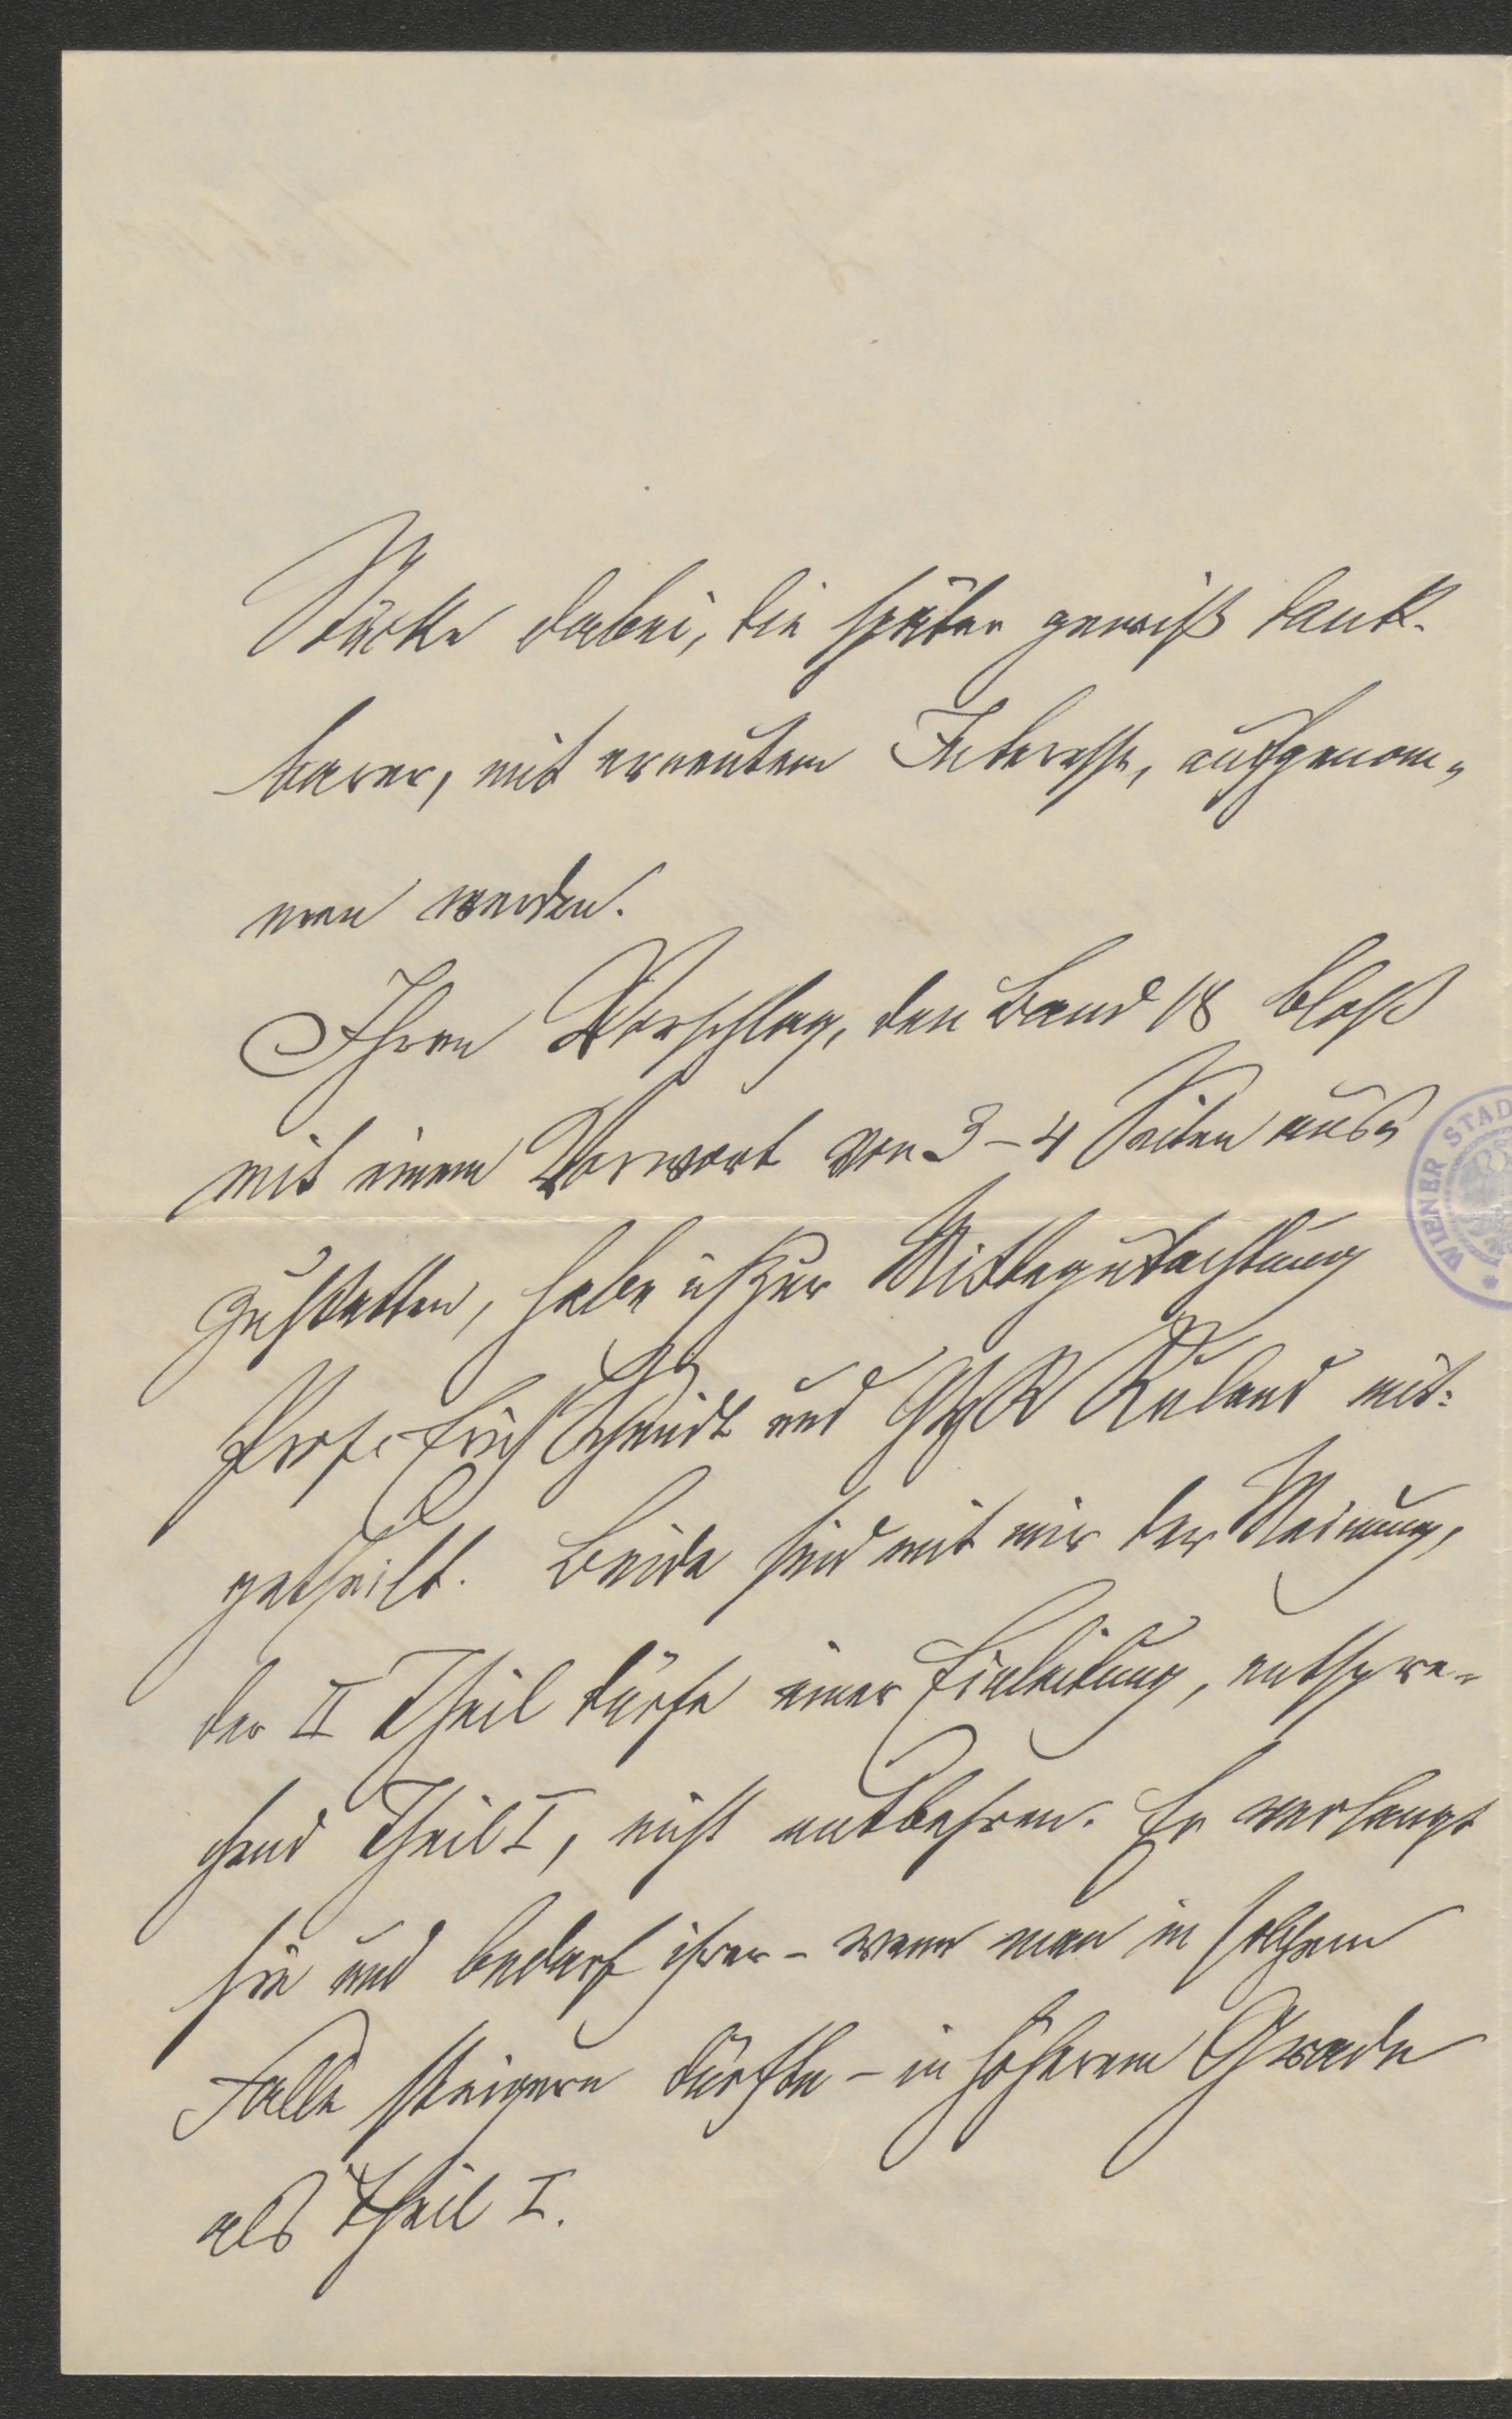 Stücke dabei, die später gewiß dank-
barer, mit erneutem Interesse, aufgenom-
men werden.
Ihren Vorschlag, den Band 18 bloß
mit einem Vorwort von 3-4 Seiten aus-
zustatten, habe ich zur Mitbegutachtung
Prof. Erich Schmidt und GHR Ruland mit-
getheilt. Beide sind mit mir der Meinung,
der II Theil dürfe einer Einleitung, entspre-
chend Theil I, nicht entbehren. Er verlangt
sie und bedarf ihrer - wenn man in solchem
Falle steigern dürfte - in höherem Grade
als Theil I.
WIENER STAD